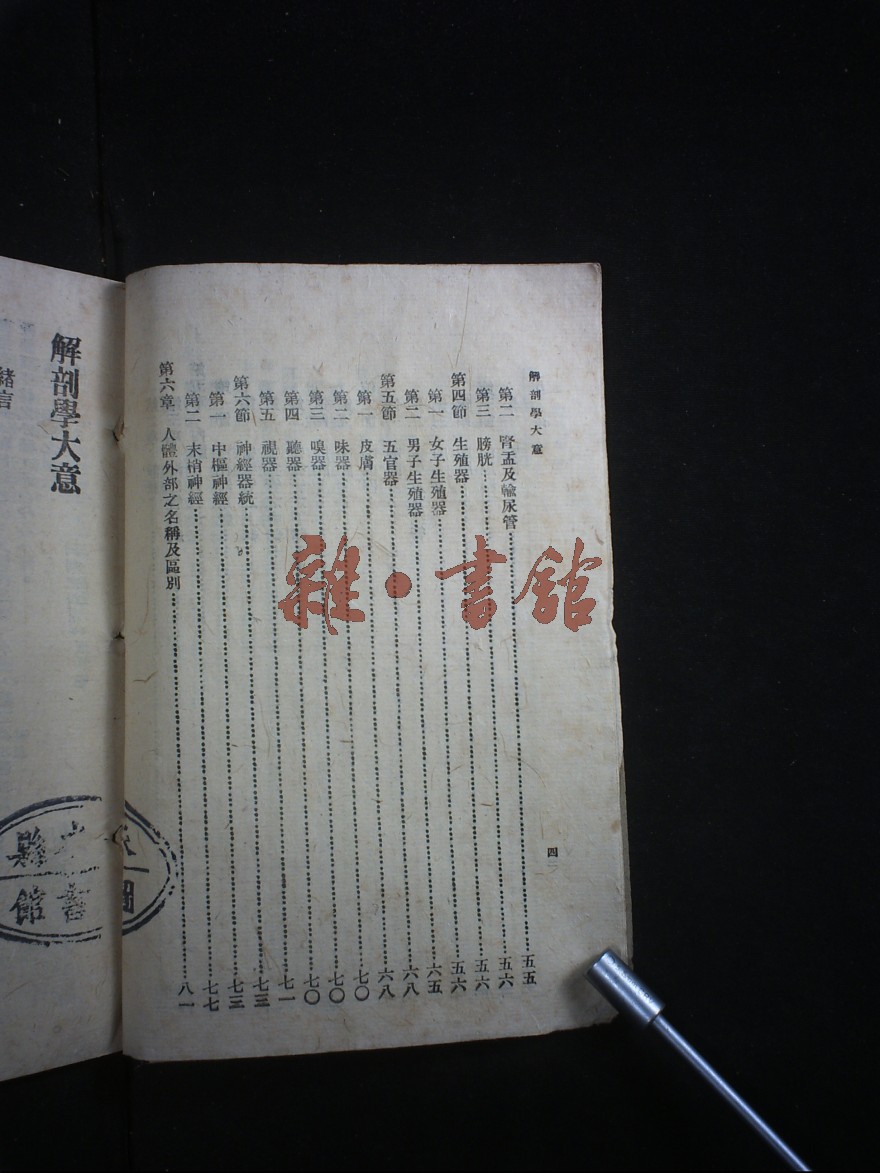 解剖學大意
第二 腎盂及輸尿管……五五
第三 膀胱……五六
第四節 生殖器……五六
第一 女子生殖器……五六
第二 男子生殖器……六五
第五節 五官器……六八
第一 皮膚……六八
第二 味器……七〇
第三 嗅器……七〇
第四 聽器……七〇
第五 視器……七一
第六節 神經器統……七三
第一 中樞神經……七三
第二 末梢神經……七七
第六章 人體外部之名稱及區別……八一
四
解剖學大意
緒言
縣
圖書館
雜·書館